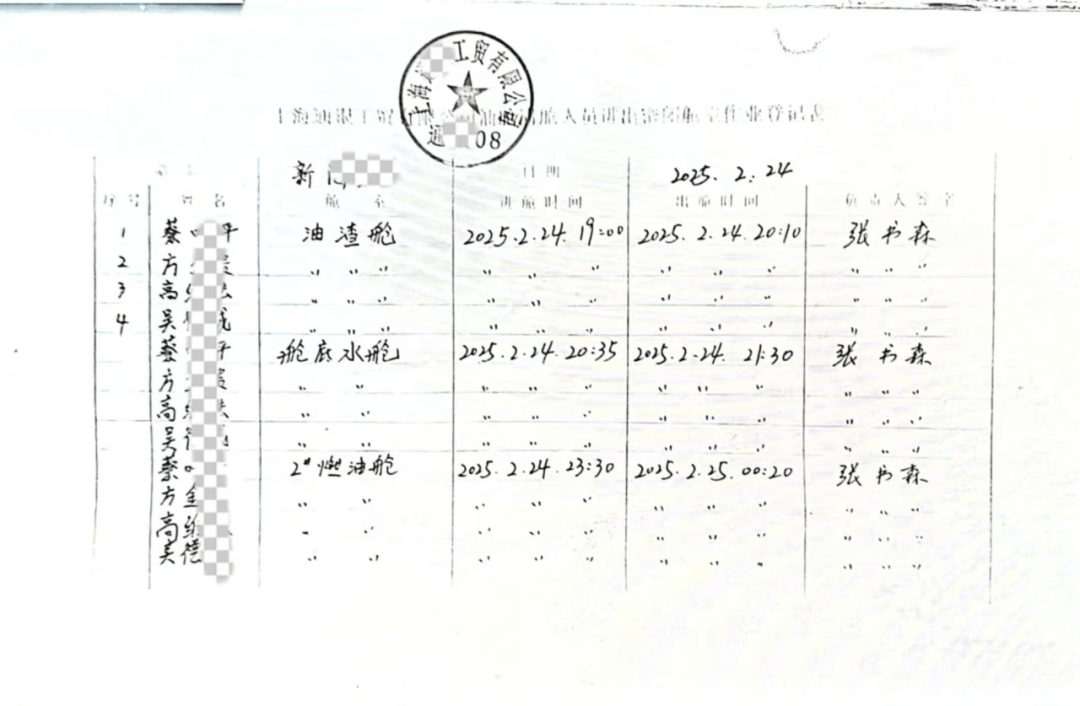 上海 工贸有限公司
通 08
上海通银工贸 油 舱人员进出密闭舱室作业登记表
新 日期 2025.2.24
序号 姓名 舱室 进舱时间 出舱时间 负责人签字
1 蔡 平 油渣舱 2025.2.24.19:00 2025.2.24.20:10 张书森
2 方 〃 〃 〃 〃 〃 〃 〃 〃 〃 〃 〃 〃
3 高 〃 〃 〃 〃 〃 〃 〃 〃 〃 〃 〃 〃
4 吴 〃 〃 〃 〃 〃 〃 〃 〃 〃 〃 〃 〃
蔡 平 舱底水舱 2025.2.24.20:35 2025.2.24.21:30 张书森
方 〃 〃 〃 〃 〃 〃 〃 〃 〃 〃 〃
高 〃 〃 〃 〃 〃 〃 〃 〃 〃 〃 〃
吴 〃 〃 〃 〃 〃 〃 〃 〃 〃 〃 〃
蔡 2# 燃油舱 2025.2.24.23:30 2025.2.25.00:20 张书森
方金 〃 〃 〃 〃 〃 〃 〃 〃 〃 〃 〃
高维 〃 〃 〃 〃 〃 〃 〃 〃 〃 〃 〃
吴德 〃 〃 〃 〃 〃 〃 〃 〃 〃 〃 〃